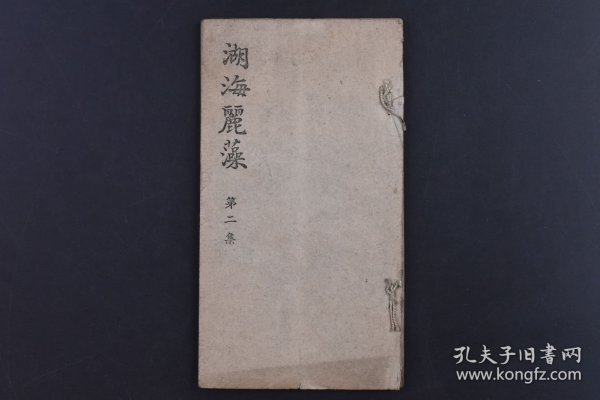 湖海麗藻
第二集
孔夫子旧书网
www.kongfz.com